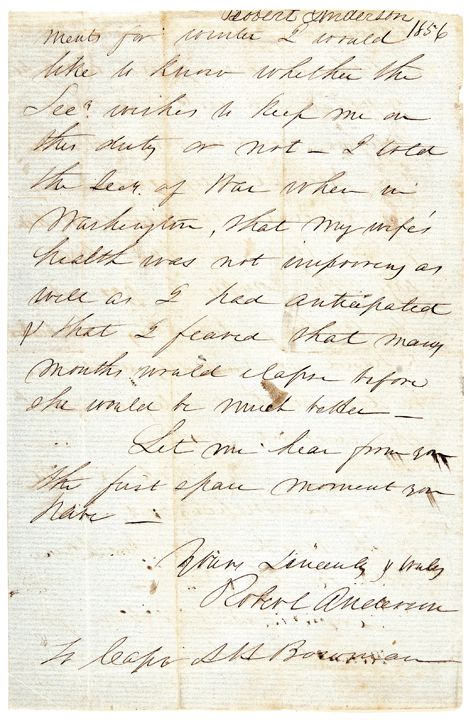 Robert Anderson
1856
ments for winter I would
like to know whether the
Secy. wishes to keep me on
this duty or not — I told
the Secy. of War when in
Washington, that my wife's
health was not improving as
well as I had anticipated
& that I feared that many
months would elapse before
she would be much better —
Let me hear from you
the first spare moment you
have —
Yours Sincerely & truly
Robert Anderson
To Capt A H Bowman